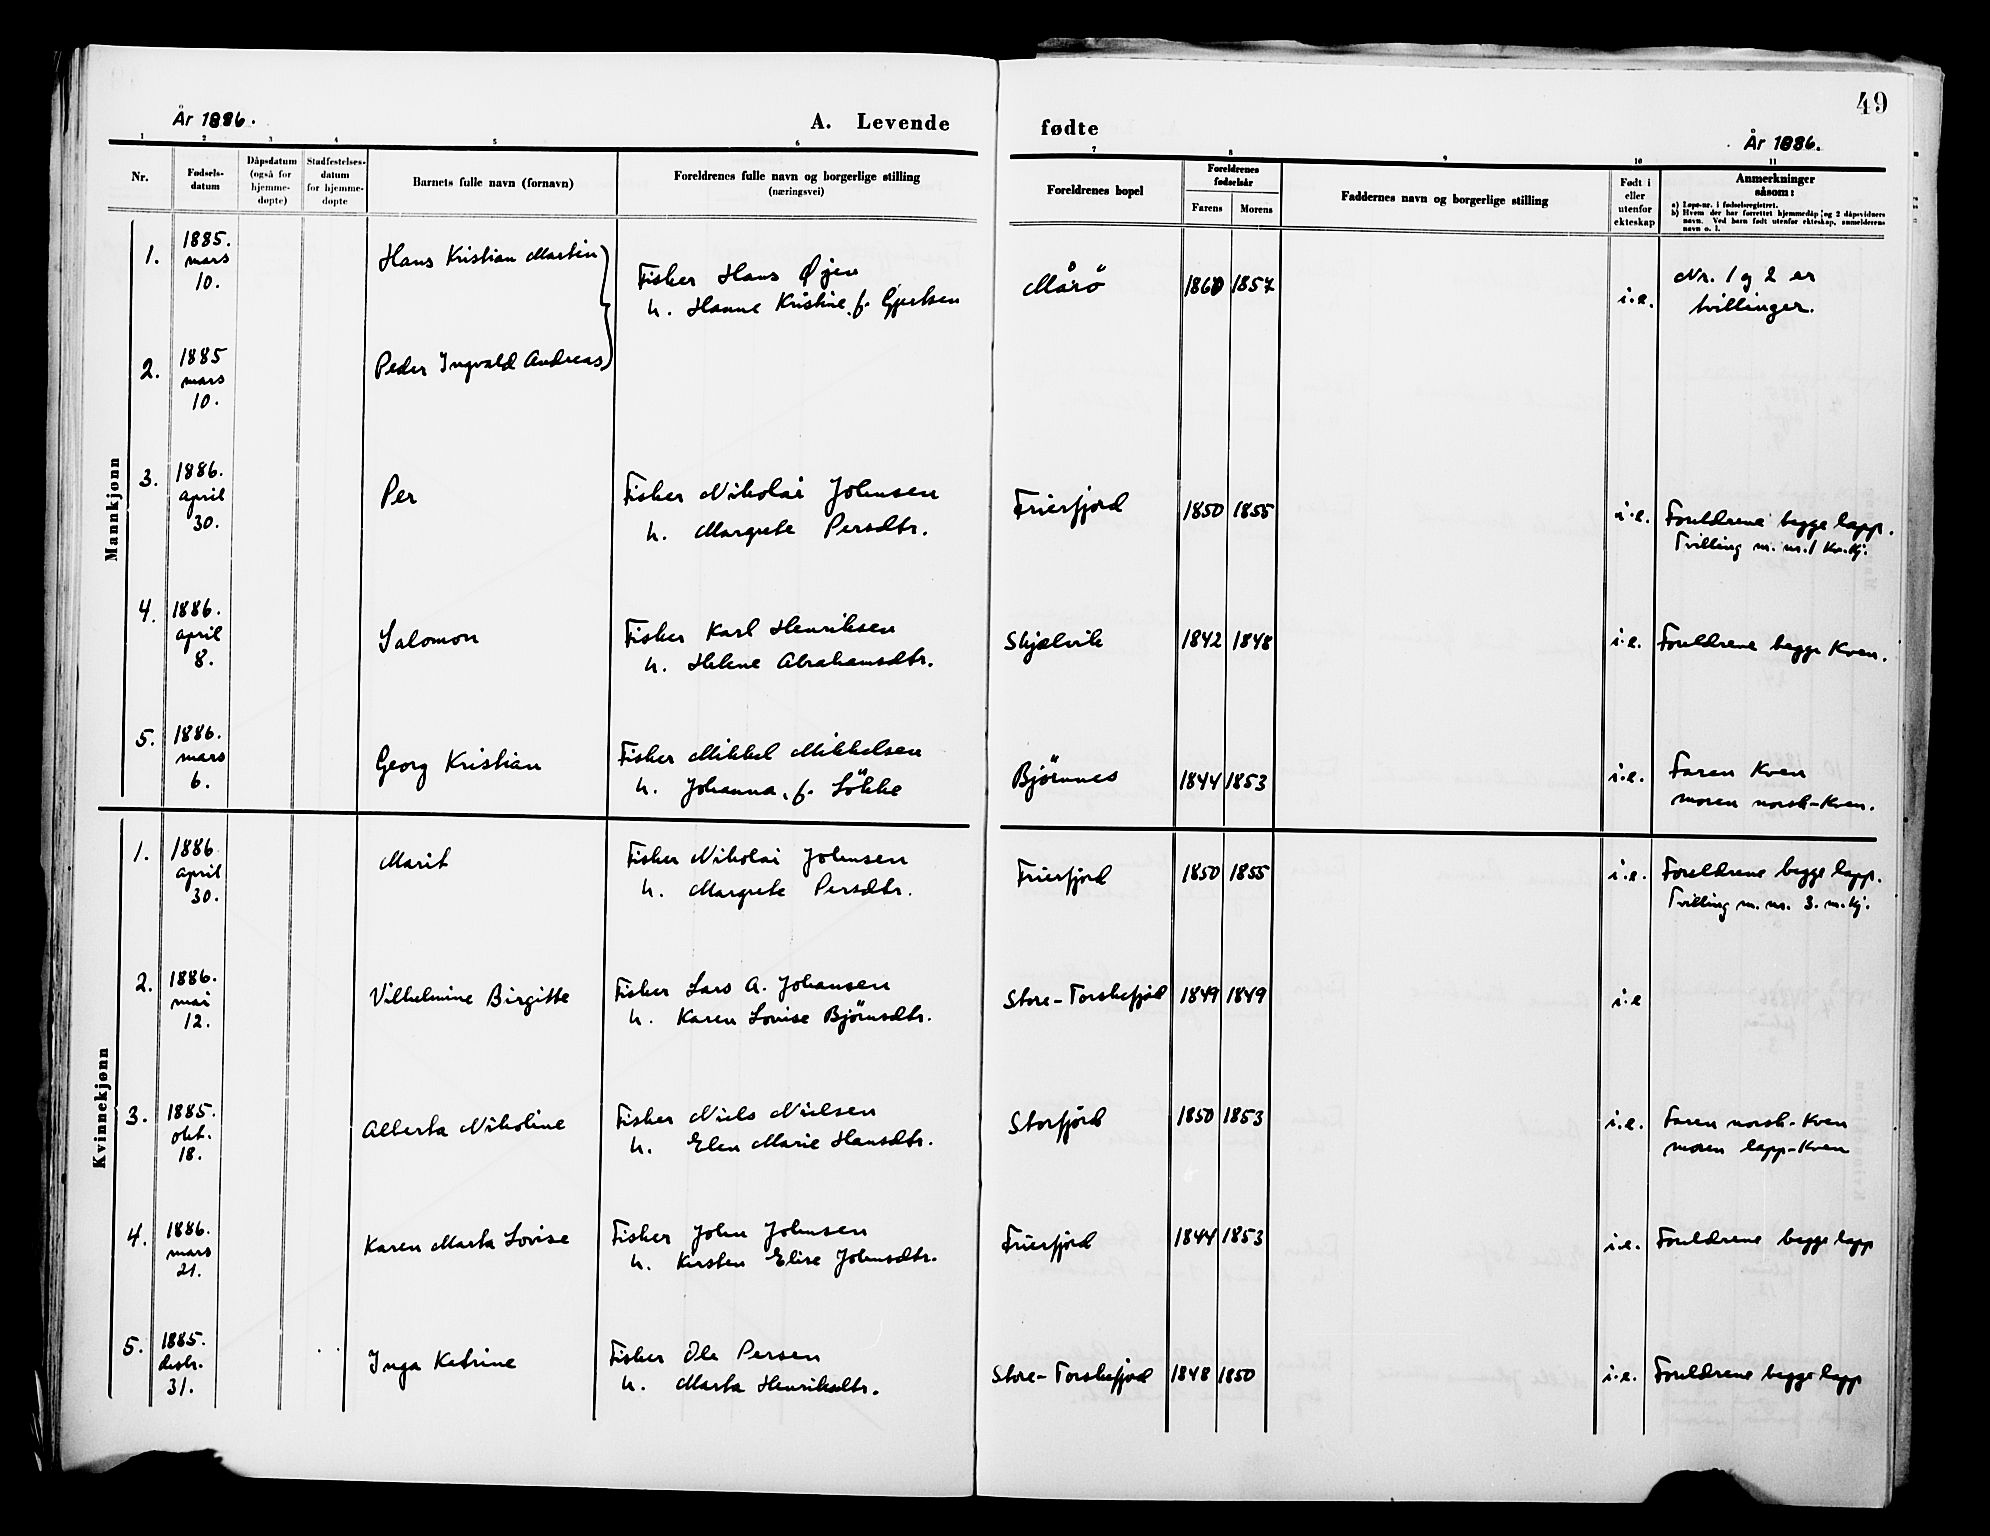 49
År 1886.
A. Levende fødte
År 1886.
1 2 3 4 5 6 7 8 9 10 11
Nr.
Fødsels-
datum
Dåpsdatum
(også for
hjemme-
døpte)
Stadfestelses-
datum
for hjemme-
døpte
Barnets fulle navn (fornavn)
Foreldrenes fulle navn og borgerlige stilling
(næringsvei)
Foreldrenes bopel
Foreldrenes
fødselsår
Farens Morens
Faddernes navn og borgerlige stilling
Født i
eller
utenfor
ekteskap
Anmerkninger
såsom:
a) Løpe-nr. i fødselsregistret.
b) Hvem der har forrettet hjemmedåp og 2 dåpsvidners
navn. Ved barn født utenfor ekteskap, anmelderens
navn o. l.
Mannkjønn
1. 1885. mars 10. Hans Kristian Martin Fisker Hans Øjen Mårö 1860 1857 i.e. Nr. 1 og 2 er
h. Hanne Kristine, f. Gjertsen tvillinger.
2. 1885 mars 10. Peder Ingvald Andreas
3. 1886. april 30. Per Fisker Nikolai Johnsen Frierfjord 1850 1855 i.e. Foreldrene begge lapp.
h. Margrete Persdtr. Tvilling m. nr. 1 kv.kj.
4. 1886. april 8. Salomon Fisker Karl Henriksen Skjælvik 1842 1848 i.e. Foreldrene begge Kven.
h. Helene Abrahamsdtr.
5. 1886. mars 6. Georg Kristian Fisker Mikkel Mikkelsen Björnnes 1844 1853 i.e. Faren Kven
h. Johanna, f. Lökke moren norsk-Kven.
Kvinnekjønn
1. 1886 april 30. Marit Fisker Nikolai Johnsen Frierfjord 1850 1855 i.e. Foreldrene begge lapp.
h. Margrete Persdtr. Tvilling m. nr. 3. m.kj.
2. 1886. mai 12. Vilhelmine Birgitte Fisker Lars A. Johansen Store-Torskefjord 1849 1849 i.e
h. Karen Lovise Björnsdtr.
3. 1885. okt. 18. Alberta Nikoline Fisker Niels Nielsen Storfjord 1850 1853 i.e. Faren norsk-Kven
h. Elen Marie Hansdtr. moren lapp-Kven
4. 1886. mars 21. Karen Marta Lovise Fisker John Johnsen Frierfjord 1844 1853 i.e. Foreldrene begge lapp
h. Kirsten Elise Johnsdtr.
5. 1885. desbr. 31. Inga Katrine Fisker Ole Persen Store-Torskefjord 1848 1850 i.e. Foreldrene begge lapp
h. Marta Henriksdtr.